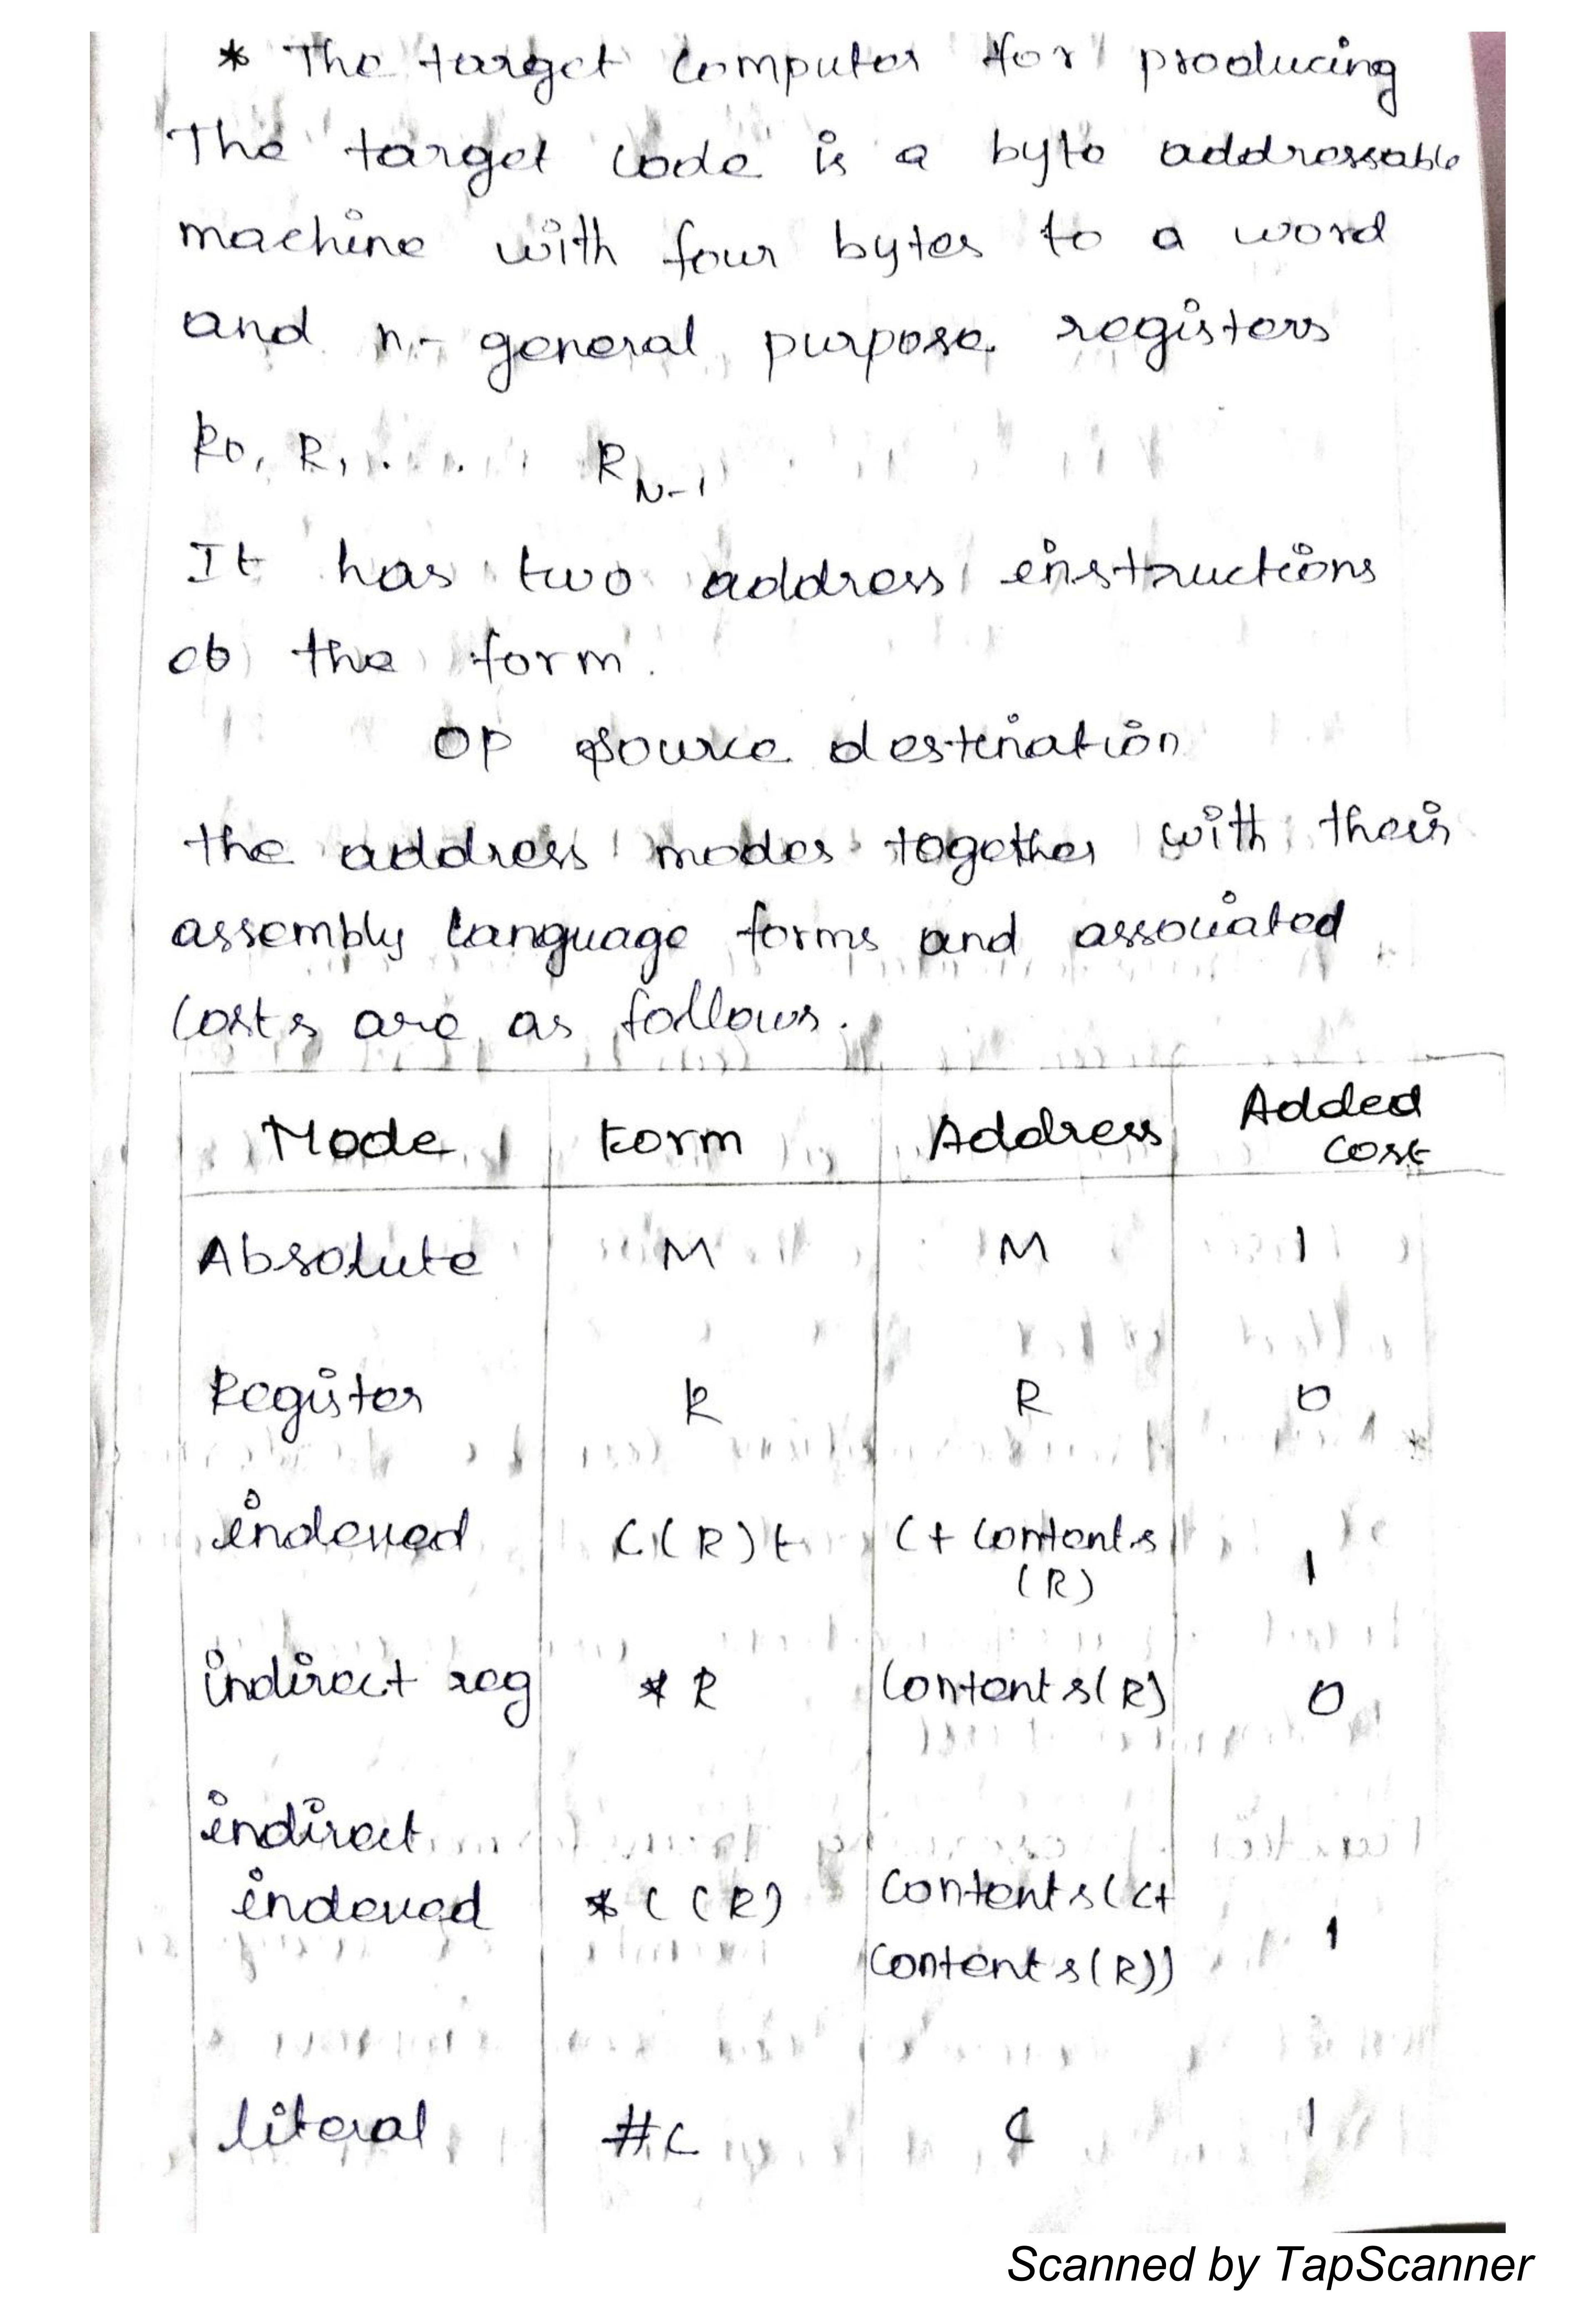 * The target computer for producing
The target code is a byte addressable
machine with four bytes to a word
and n- general purpose registers
R0, R1, . . . . RN-1
It has two address instructions
of the form.
OP source destination
the address modes together with their
assembly language forms and associated
costs are as follows.
Mode Form Address Added
cost
Absolute M M 1
Register R R 0
indexed C(R)+ C+ contents
(R) 1
indirect reg *R contents(R) 0
indirect
indexed *C(R) contents(C+
contents(R)) 1
literal #C C 1
Scanned by TapScanner